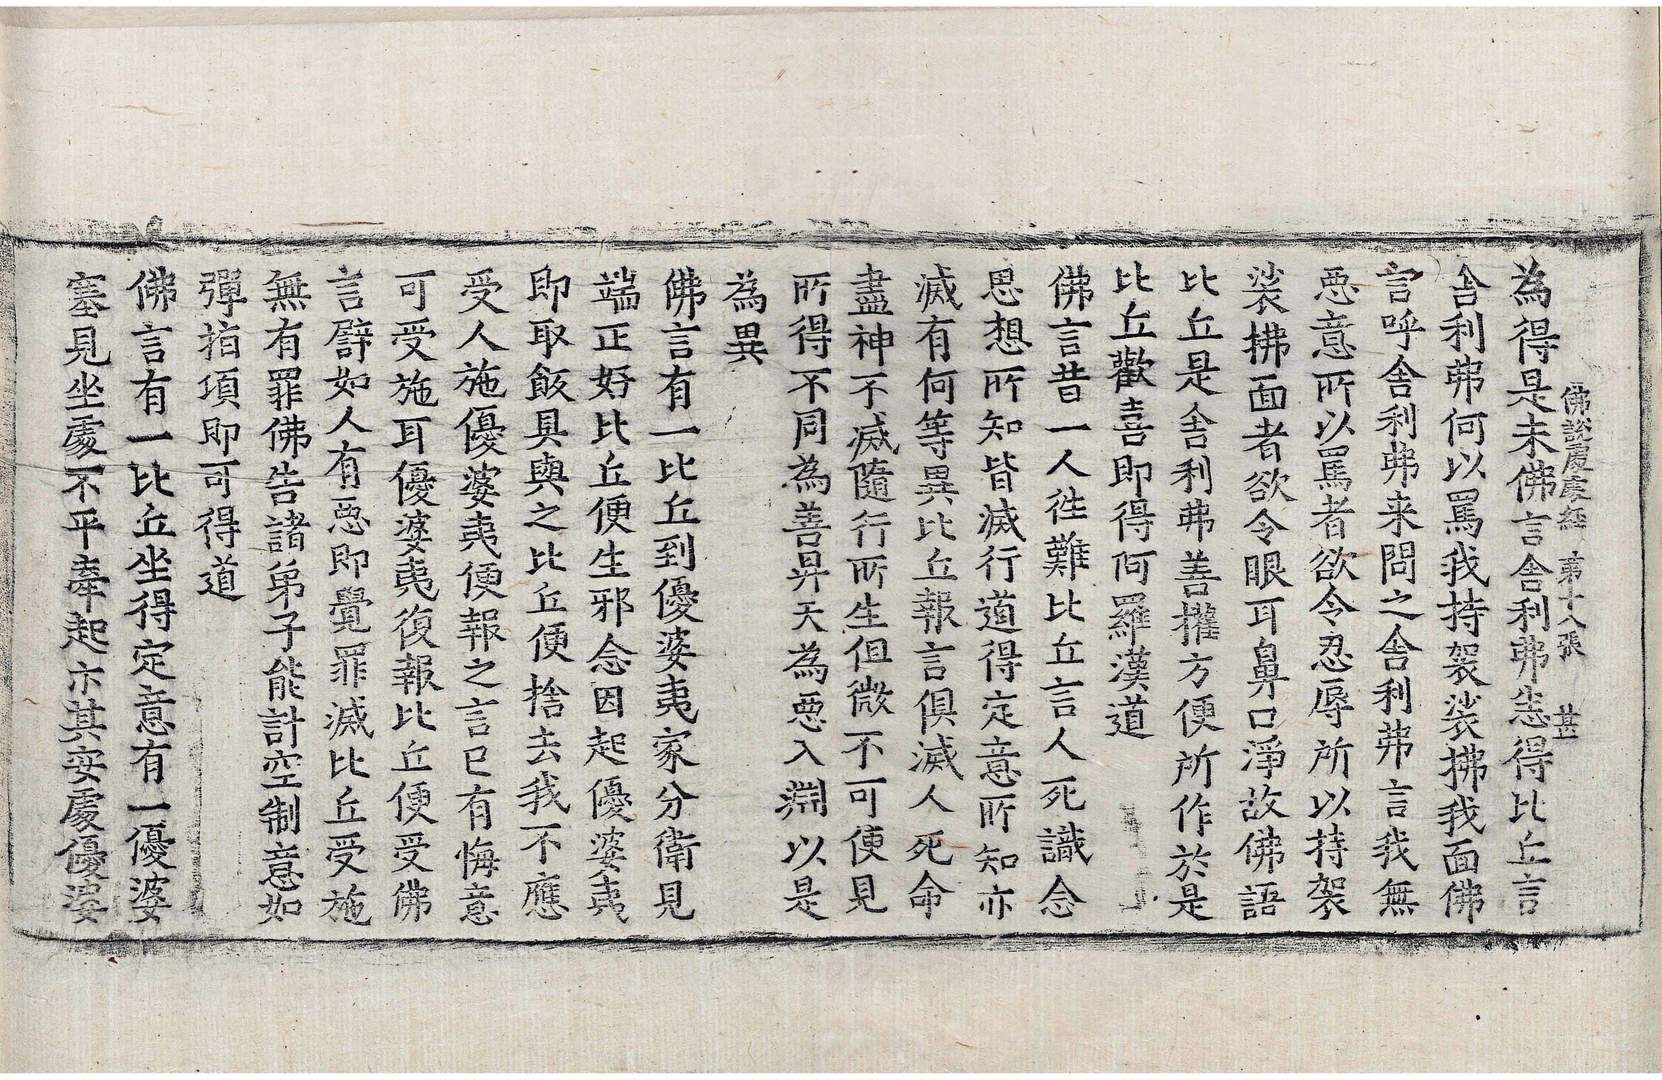 佛說處處經 第十八張 甚
為得是未佛言舍利弗恙得比丘言
舍利弗何以罵我持袈裟拂我面佛
言呼舍利弗来問之舍利弗言我無
惡意所以罵者欲令忍辱所以持袈
裟拂面者欲令眼耳鼻口淨故佛語
比丘是舍利弗善權方便所作於是
比丘歡喜即得阿羅漢道
佛言昔一人往難比丘言人死識念
思想所知皆滅行道得定意所知亦
滅有何等異比丘報言俱滅人死命
盡神不滅隨行所生但微不可便見
所得不同為善昇天為惡入淵以是
為異
佛言有一比丘到優婆夷家分衛見
端正好比丘便生邪念因起優婆夷
即取飯具與之比丘便捨去我不應
受人施優婆夷便報之言已有悔意
可受施耳優婆夷復報比丘便受佛
言譬如人有惡即覺罪滅比丘受施
無有罪佛告諸弟子能計空制意如
彈指項即可得道
佛言有一比丘坐得定意有一優婆
塞見坐處不平牽起示其安處優婆